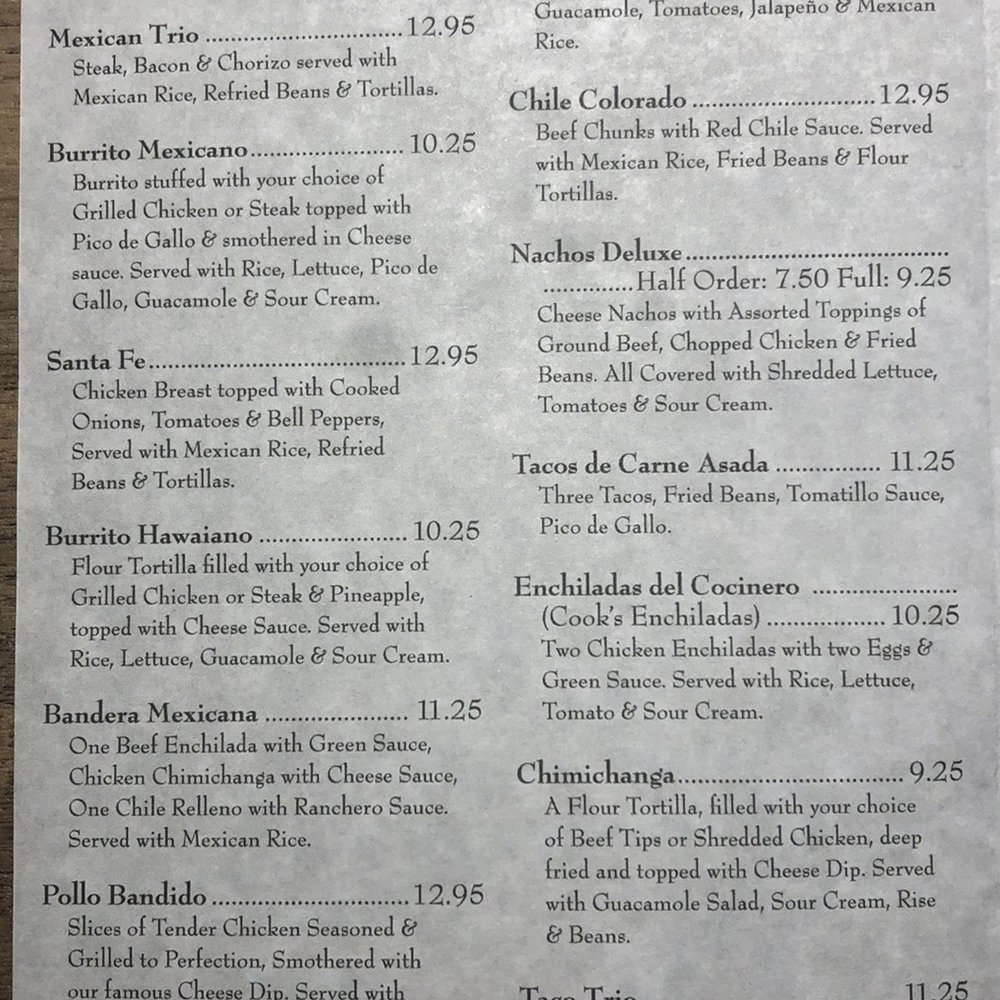 Mexican Trio .............................. 12.95
Steak, Bacon & Chorizo served with
Mexican Rice, Refried Beans & Tortillas.
Burrito Mexicano....................... 10.25
Burrito stuffed with your choice of
Grilled Chicken or Steak topped with
Pico de Gallo & smothered in Cheese
sauce. Served with Rice, Lettuce, Pico de
Gallo, Guacamole & Sour Cream.
Santa Fe....................................... 12.95
Chicken Breast topped with Cooked
Onions, Tomatoes & Bell Peppers,
Served with Mexican Rice, Refried
Beans & Tortillas.
Burrito Hawaiano ...................... 10.25
Flour Tortilla filled with your choice of
Grilled Chicken or Steak & Pineapple,
topped with Cheese Sauce. Served with
Rice, Lettuce, Guacamole & Sour Cream.
Bandera Mexicana ..................... 11.25
One Beef Enchilada with Green Sauce,
Chicken Chimichanga with Cheese Sauce,
One Chile Relleno with Ranchero Sauce.
Served with Mexican Rice.
Pollo Bandido .............................. 12.95
Slices of Tender Chicken Seasoned &
Grilled to Perfection, Smothered with
our famous Cheese Dip. Served with
Guacamole, Tomatoes, Jalapeño & Mexican
Rice.
Chile Colorado ........................... 12.95
Beef Chunks with Red Chile Sauce. Served
with Mexican Rice, Fried Beans & Flour
Tortillas.
Nachos Deluxe.......................................
..............Half Order: 7.50 Full: 9.25
Cheese Nachos with Assorted Toppings of
Ground Beef, Chopped Chicken & Fried
Beans. All Covered with Shredded Lettuce,
Tomatoes & Sour Cream.
Tacos de Carne Asada ................ 11.25
Three Tacos, Fried Beans, Tomatillo Sauce,
Pico de Gallo.
Enchiladas del Cocinero ......................
(Cook's Enchiladas) .................. 10.25
Two Chicken Enchiladas with two Eggs &
Green Sauce. Served with Rice, Lettuce,
Tomato & Sour Cream.
Chimichanga.................................. 9.25
A Flour Tortilla, filled with your choice
of Beef Tips or Shredded Chicken, deep
fried and topped with Cheese Dip. Served
with Guacamole Salad, Sour Cream, Rise
& Beans.
Taco Trio 11.25